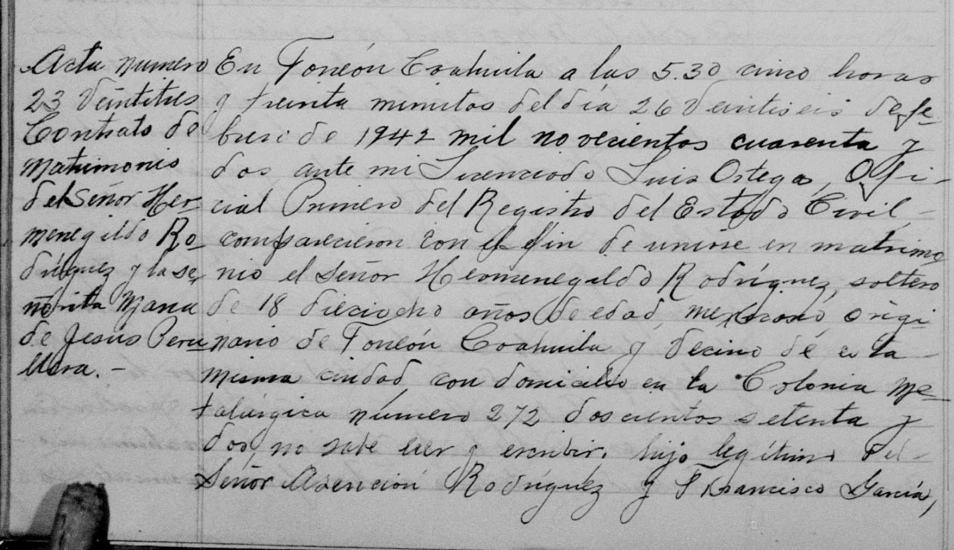 Acta numero
23 Veintitres
Contrato de
Matrimonio
del Señor Her
menegildo Ro
driguez y la se
ñorita Maria
de Jesus Peru
llera. -
En Torreón Coahuila a las 5.30 cinco horas
y treinta minutos del día 26 veintiseis de fe-
brero de 1942 mil novecientos cuarenta y
dos ante mi Licenciado Luis Ortega, Ofi-
cial Primero del Registro del Estado Civil -
comparecieron con el fin de unirse en matrimo
nio el señor Hermenegildo Rodríguez, soltero
de 18 dieciocho años de edad, mexicano, origi
nario de Torreón Coahuila y vecino de esta -
misma ciudad con domicilio en la Colonia Me-
talúrgica número 272 doscientos setenta y
dos, no sabe leer y escribir, hijo legítimo del -
Señor Asención Rodríguez y Francisca García,